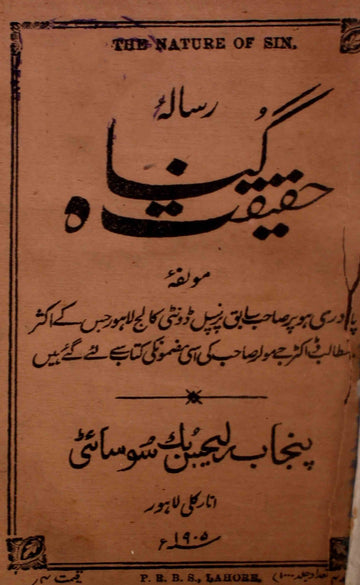 THE NATURE OF SIN.
رسالۂ
حقیقت گناہ
مولفۂ
پادری ہوپر صاحب سابق پرنسپل ڈونٹی کالج لاہور جس کے اکثر
مطالب ڈاکٹر جے مولر صاحب کی اسی مضمون کی کتاب سے لئے گئے ہیں
پنجاب ریلیجس بک سوسائٹی
انارکلی لاہور
۱۹۰۵ء
P. R. B. S., LAHORE.
قیمت